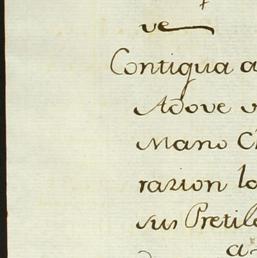 ve
Contigua a
Adove v
Mano Ch
razion lo
sus Pretile
a